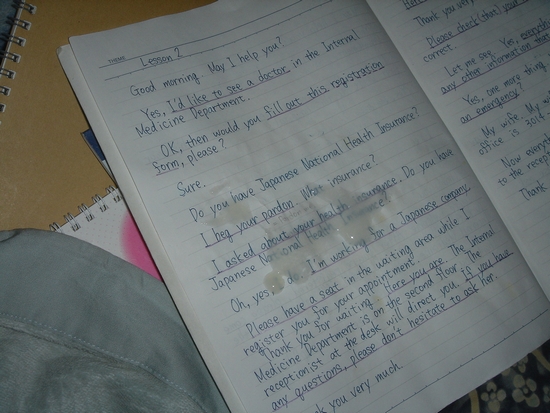 THEME Lesson 2
Good morning. May I help you?
Yes, I'd like to see a doctor in the Internal
Medicine Department.
OK, then would you fill out this registration
form, please?
Sure.
Do you have Japanese National Health Insurance?
I beg your pardon. What insurance?
I asked about your health insurance. Do you have
Japanese National Health Insurance?
Oh, yes, I'm working for a Japanese company.
Please have a seat in the waiting area while I
register you for your appointment.
Thank you for waiting. Here you are. The Internal
Medicine Department is on the second floor. The
receptionist at the desk will direct you. If you have
any questions, please don't hesitate to ask her.
you very much.
Thank you very
Please check (that) your
correct.
Let me see. Yes,
any other information
Yes, one more thing
an emergency?
My wife. My
office is
Now
to the
Thank